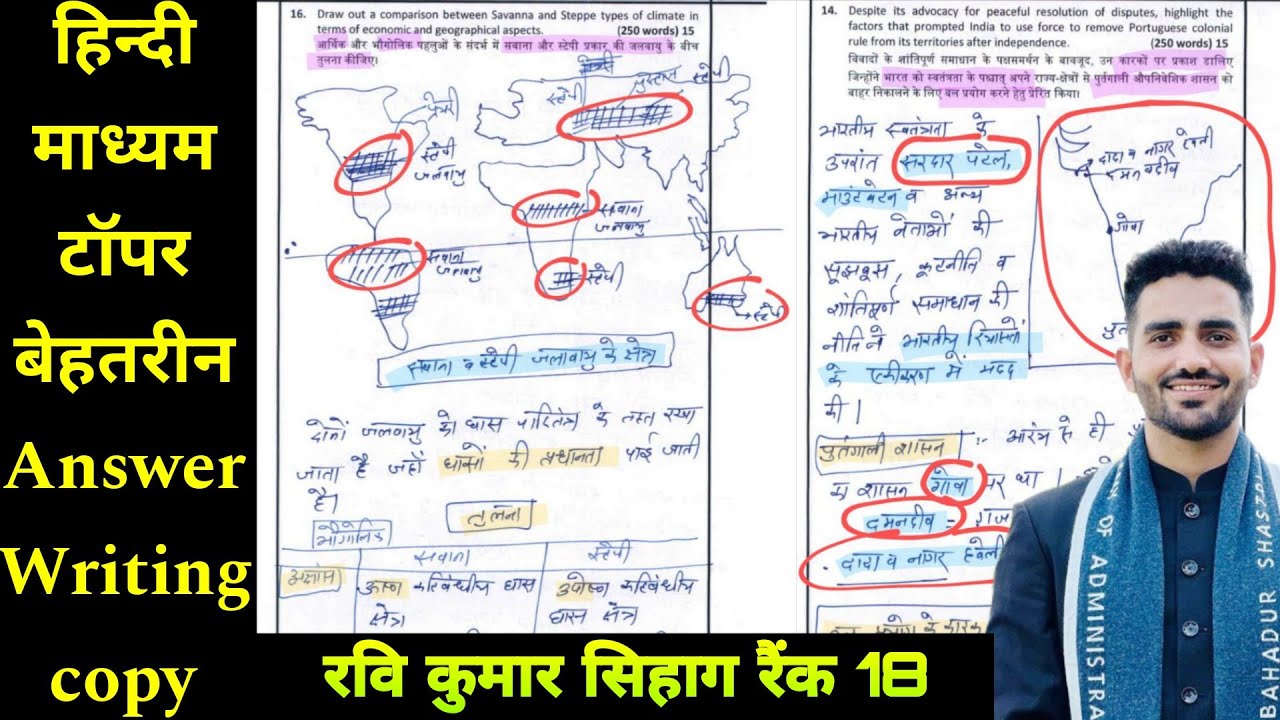 हिन्दी
माध्यम
टॉपर
बेहतरीन
Answer
Writing
copy
16. Draw out a comparison between Savanna and Steppe types of climate in
terms of economic and geographical aspects. (250 words) 15
आर्थिक और भौगोलिक पहलुओं के संदर्भ में सवाना और स्टेपी प्रकार की जलवायु के बीच
तुलना कीजिए।
प्रेयरी
स्टेपी
जलवायु
स्टेपी
स्टेपी
सवाना
जलवायु
सवाना
जलवायु
स्टेपी
स्टेपी
सवाना व स्टेपी जलवायु के क्षेत्र
दोनों जलवायु को घास पारितंत्र के तहत रखा
जाता है जहाँ घासों की प्रधानता पाई जाती
है।
तुलना
भौगोलिक
सवाना स्टेपी
अक्षांश उष्ण कटिबंधीय घास उपोष्ण कटिबंधीय
क्षेत्र घास क्षेत्र
14. Despite its advocacy for peaceful resolution of disputes, highlight the
factors that prompted India to use force to remove Portuguese colonial
rule from its territories after independence. (250 words) 15
विवादों के शांतिपूर्ण समाधान के पक्षसमर्थन के बावजूद, उन कारकों पर प्रकाश डालिए
जिन्होंने भारत को स्वतंत्रता के पश्चात् अपने राज्य-क्षेत्रों से पुर्तगाली औपनिवेशिक शासन को
बाहर निकालने के लिए बल प्रयोग करने हेतु प्रेरित किया।
भारतीय स्वतंत्रता के
उपरांत सरदार पटेल,
माउंटबेटन व अन्य
भारतीय नेताओं की
सूझबूझ, कूटनीति व
शांतिपूर्ण समाधान की
नीति ने भारतीय रियासतों
के एकीकरण में मदद
की।
दादा व नागर हवेली
दमनदीव
गोवा
पुर्तगाली शासन :- आरंभ से ही
का शासन गोवा पर था।
दमनदीव
दादरा व नागर हवेली
OF ADMINISTRA
BAHADUR SHAST
रवि कुमार सिहाग रैंक 18